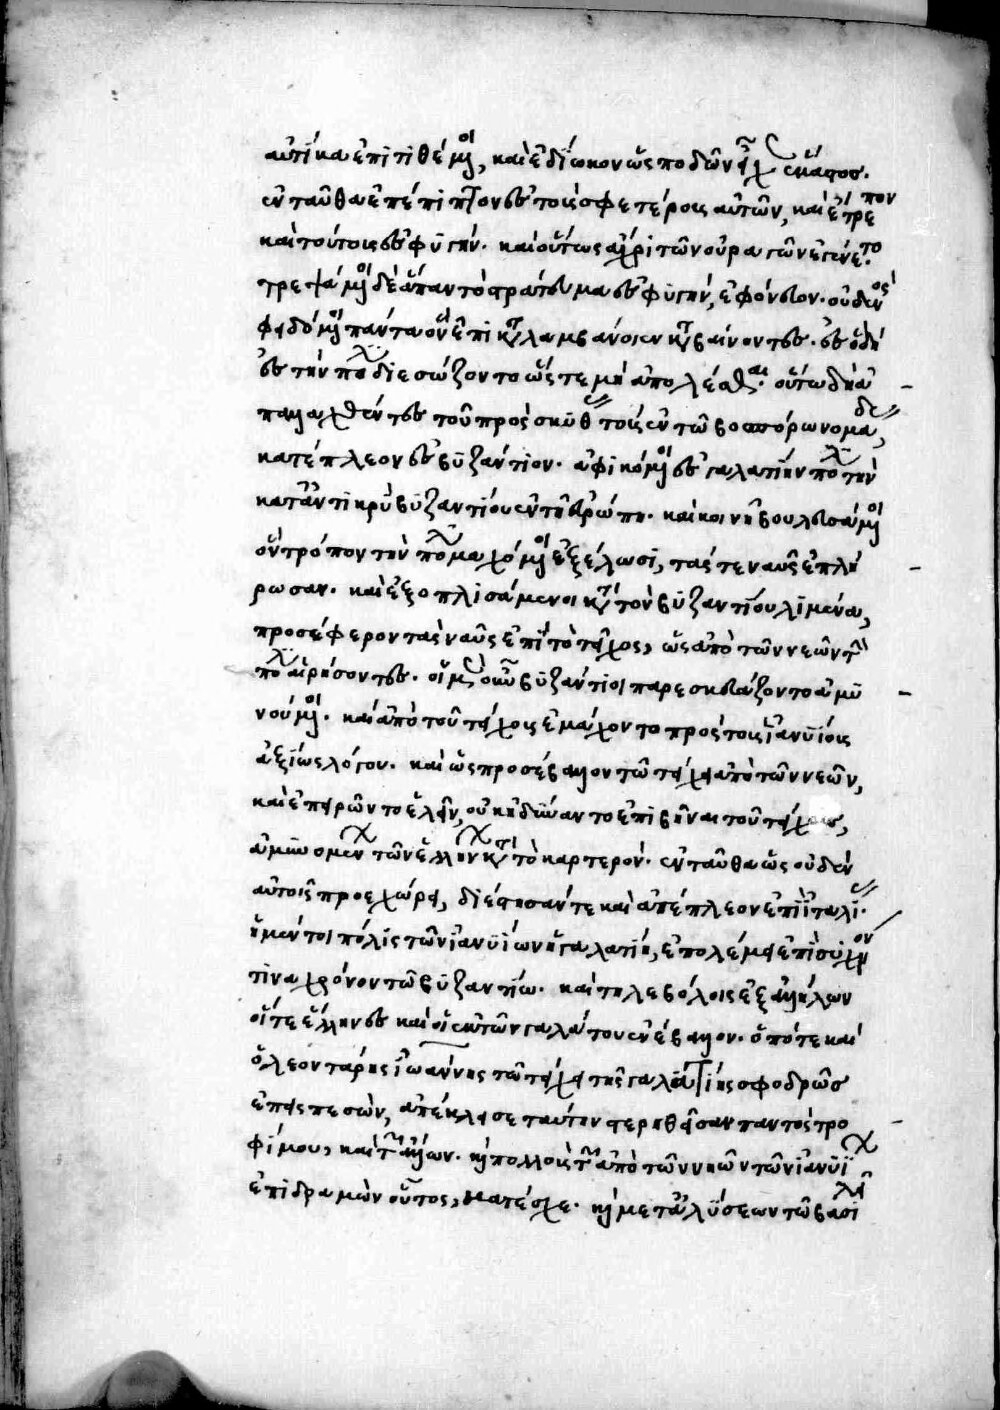 αὐτίκα ἐπιτιθέμενοι, καὶ ἐδίωκον ὡς ποδῶν εἶχεν ἕκαστος.
ἐνταῦθα ἐπέπιπτον ἐς τοὺς σφετέρους αὐτῶν, καὶ ἔτρεπον
καὶ τούτους ἐς φυγήν. καὶ οὕτως ἄχρι τῶν οὐραγῶν ἐγένετο.
τρεψάμενοι δὲ ἅπαν τὸ στράτευμα ἐς φυγήν, ἐφόνευον. οὐδενὸς
φειδόμενοι πάντα ὃν ἐπικαταλαμβάνοιεν καταβαίνοντες. ἐς ὃ δὴ
ἐς τὴν πόλιν διεσώζοντο ὥστε μὴ ἀπολέσθαι. οὕτω δὴ αὖ
παραχθέντες τοῦ πρὸς σκύθας τοὺς ἐν τῷ βοσπόρῳ νομάδας,
κατέπλεον ἐς βυζάντιον. ἀφικόμενοι ἐς γαλατίην πόλιν τὴν
καταντικρὺ βυζαντίου ἐν τῇ εὐρώπῃ. καὶ κοινῇ βουλευσάμενοι
ὅντρόπον τὴν πόλιν μαχόμενοι ἐξέλωσι, τάς τε ναῦς ἐπλή
ρωσαν. καὶ ἐξοπλισάμενοι κατὰ τὸν βυζαντίου λιμένα,
προσέφερον τὰς ναῦς ἐπὶ τὸ τεῖχος, ὡς ἀπὸ τῶν νεῶν τὴν
πόλιν αἱρήσοντες. οἱ μὲν οὖν βυζάντιοι παρεσκευάζοντο ἀμυ
νούμενοι. καὶ ἀπὸ τοῦ τείχους ἐμάχοντο πρὸς τοὺς ἰανυΐους
ἀξίως λόγου. καὶ ὡς προσέβαλλον τῷ τείχει ἀπὸ τῶν νεῶν,
καὶ ἐπειρῶντο ἑλεῖν, οὐκ ἠδύναντο ἐπιβῆναι τοῦ τείχους,
ἀμυνομένων τῶν ἑλλήνων κατὰ τὸ καρτερόν. ἐνταῦθα ὡς οὐδὲν
αὐτοῖς προεχώρει, διέστησάν τε καὶ ἀπέπλεον ἐπὶ ἰταλίας.
ἡ μέντοι πόλις τῶν ἰανυΐων ἡ γαλατίη, ἐπολέμει ἐπὶ συχνόν
τινα χρόνον τῷ βυζαντίῳ. καὶ τηλεβόλοις ἐξ ἀλλήλων
οἵ τε ἕλληνες καὶ οἱ ἐκ τῶν γαλάτου ἐνέβαλλον. ὁπότε καὶ
ὁ λεοντάρης ἰωάννης τῷ τείχει τῆς γαλατίης σφοδρῶς
ἐπεισπεσών, ἀπέκλεισε ταύτην στερηθεῖσαν παντὸς τρο
φίμου, καὶ τῶν ἄλλων. καὶ πολλοὺς τῶν ἀπὸ τῶν νηῶν τῶν ἰανυΐων
ἐπιδραμὼν οὗτος, κατέσχε. καὶ μετὰ λύσεων τῷ βασιλεῖ